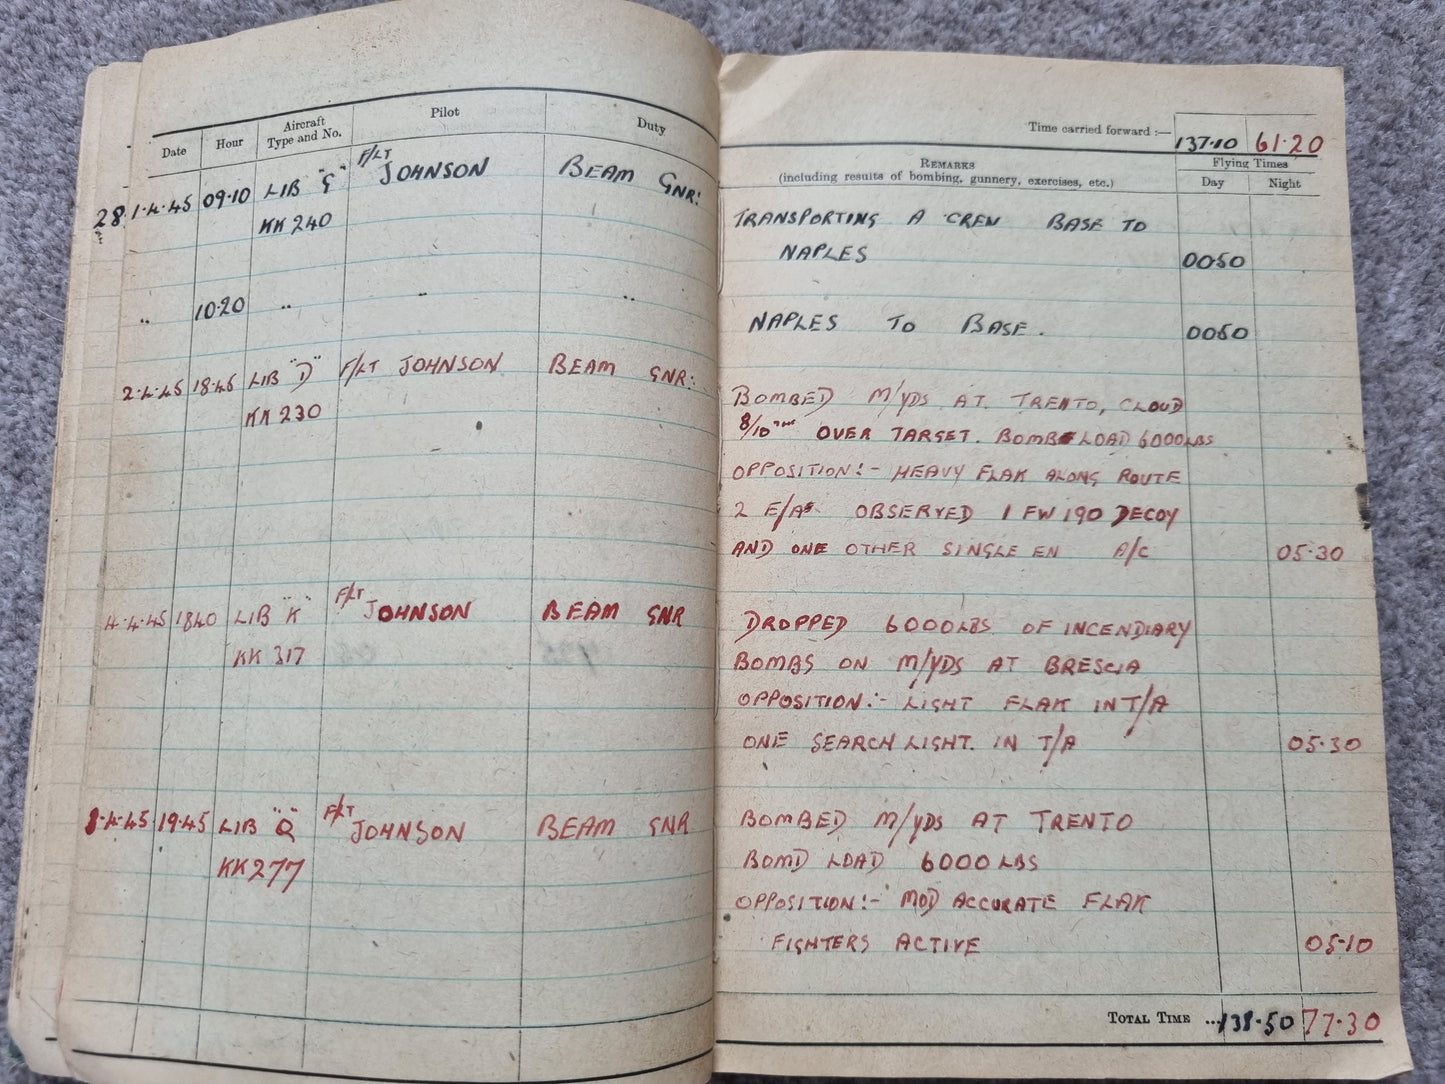 Date Hour Aircraft Type and No. Pilot Duty
28. 1·4·45 09·10 LIB "G" F/LT JOHNSON BEAM GNR:
KK 240
" 10·20 " " "
2·4·45 18·45 LIB "D" F/LT JOHNSON BEAM GNR:
KK 230
4·4·45 1840 LIB "K" F/LT JOHNSON BEAM GNR
KK 317
8·4·45 19·45 LIB "Q" F/LT JOHNSON BEAM GNR
KK277
Time carried forward :— 137·10 61·20
REMARKS
(including results of bombing, gunnery, exercises, etc.)
Flying Times
Day Night
TRANSPORTING A CREW BASE TO
NAPLES 0050
NAPLES TO BASE. 0050
BOMBED M/YDS AT TRENTO, CLOUD
8/10ths OVER TARGET. BOMB LOAD 6000LBS
OPPOSITION:- HEAVY FLAK ALONG ROUTE
2 E/As OBSERVED 1 FW 190 DECOY
AND ONE OTHER SINGLE EN A/C 05·30
DROPPED 6000LBS OF INCENDIARY
BOMBS ON M/YDS AT BRESCIA
OPPOSITION:- LIGHT FLAK IN T/A
ONE SEARCHLIGHT. IN T/A 05·30
BOMBED M/YDS AT TRENTO
BOMD LOAD 6000LBS
OPPOSITION:- MOD ACCURATE FLAK
FIGHTERS ACTIVE 05·10
TOTAL TIME ... 138·50 77·30